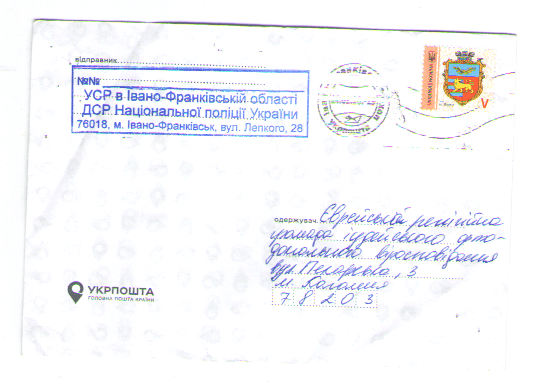 відправник
№№
УСР в Івано-Франківській області
ДСР Національної поліції України
76018, м. Івано-Франківськ, вул. Лепкого, 28
V
одержувач Єврейській релігійна
громада іудейського орто-
доксального віросповідання
вул. Пекарська, 3
м. Коломия
78203
УКРПОШТА
ГОЛОВНА ПОШТА КРАЇНИ